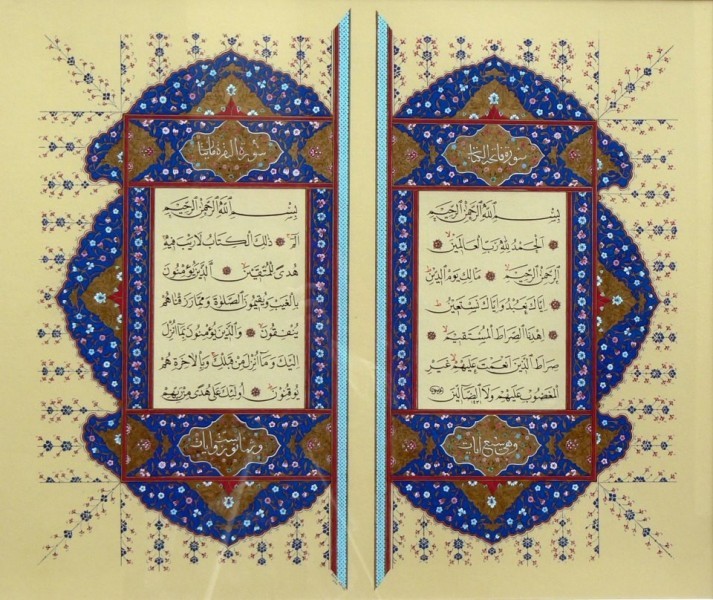 سورة فاتحة الكتاب
بسم الله الرحمن الرحيم
الحمد لله رب العالمين
الرحمن الرحيم مالك يوم الدين
اياك نعبد واياك نستعين
اهدنا الصراط المستقيم
صراط الذين انعمت عليهم غير
المغضوب عليهم ولا الضالين
وهي سبع ايات
سورة البقرة مائتا
بسم الله الرحمن الرحيم
الم ذلك الكتاب لا ريب فيه
هدى للمتقين الذين يؤمنون
بالغيب ويقيمون الصلوة ومما رزقناهم
ينفقون والذين يؤمنون بما انزل
اليك وما انزل من قبلك وبالاخرة هم
يوقنون اولئك على هدى من ربهم
وثمانون وست ايات